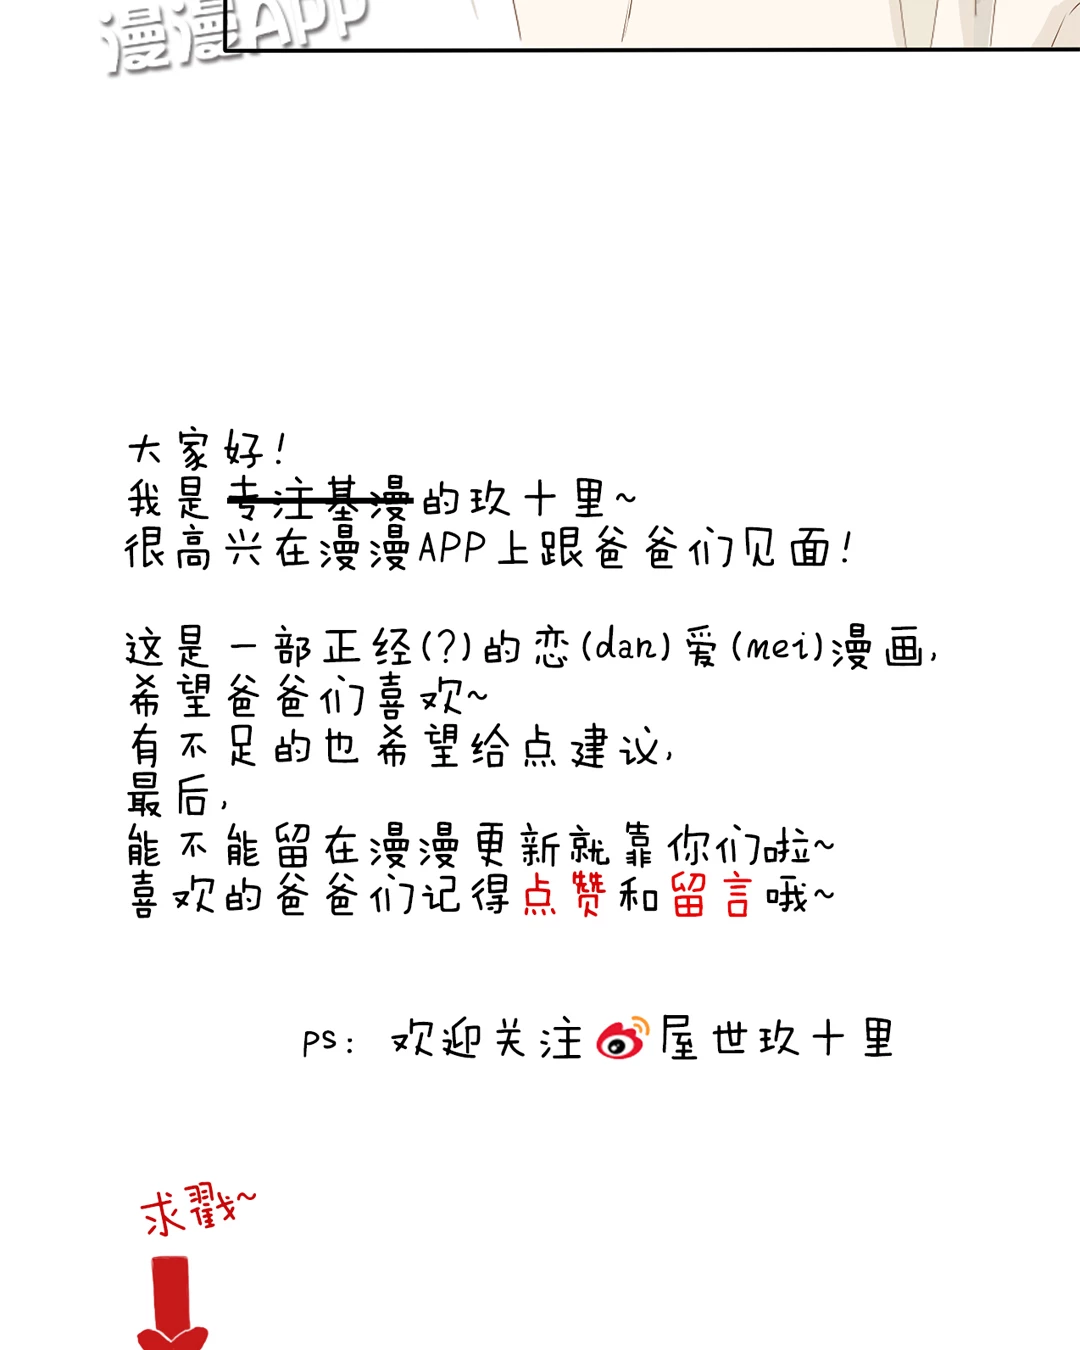 漫漫APP
大家好！
我是专注基漫的玖十里~
很高兴在漫漫APP上跟爸爸们见面！
这是一部正经(?)的恋(dan)爱(mei)漫画，
希望爸爸们喜欢~
有不足的也希望给点建议，
最后，
能不能留在漫漫更新就靠你们啦~
喜欢的爸爸们记得点赞和留言哦~
ps：欢迎关注屋世玖十里
求戳~